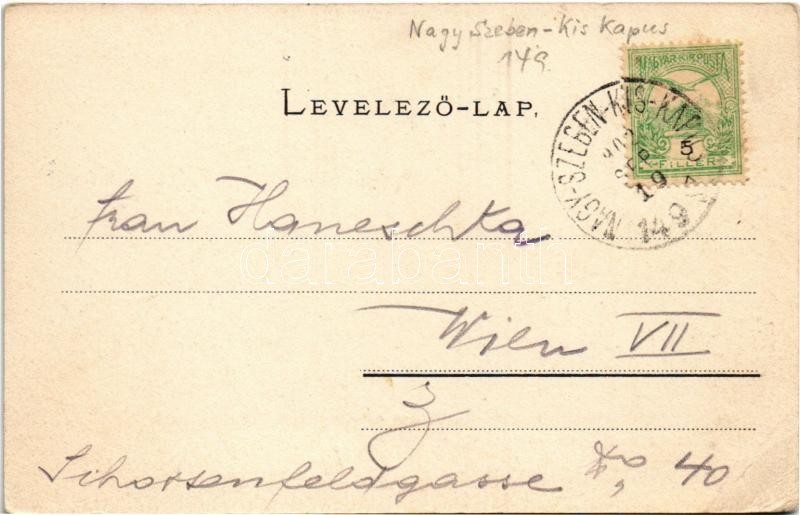 Nagy Szeben-Kis Kapus
149.
LEVELEZŐ-LAP.
MAGYAR KIR. POSTA
5
FILLÉR
NAGY-SZEBEN-KIS-KAPUS
19
149
Frau Haneschka
darabanth
Wien VII
3
Schottenfeldgasse No 40